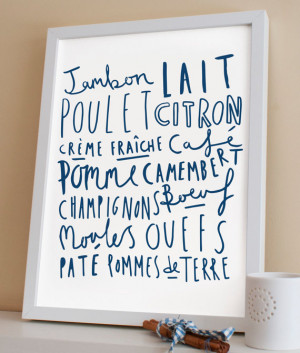 Jambon LAIT
POULET CITRON
CRÈME FRAÎCHE Café
Pomme CAMEMBERT
CHAMPIGNONS Boeuf
Moules OUEFS
PATE POMMES de TERRE